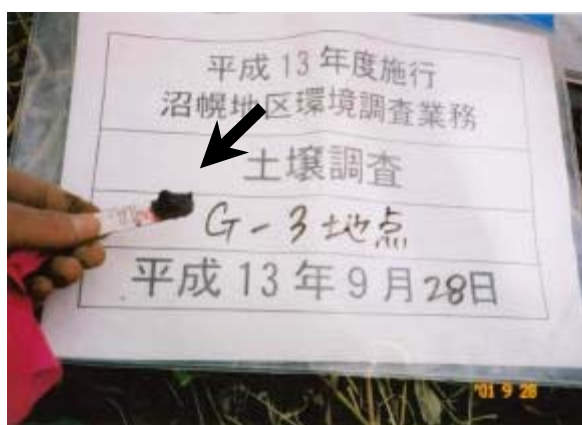 平成13年度施行
沼幌地区環境調査業務
土壌調査
G-3地点
平成13年9月28日
'01 9 28